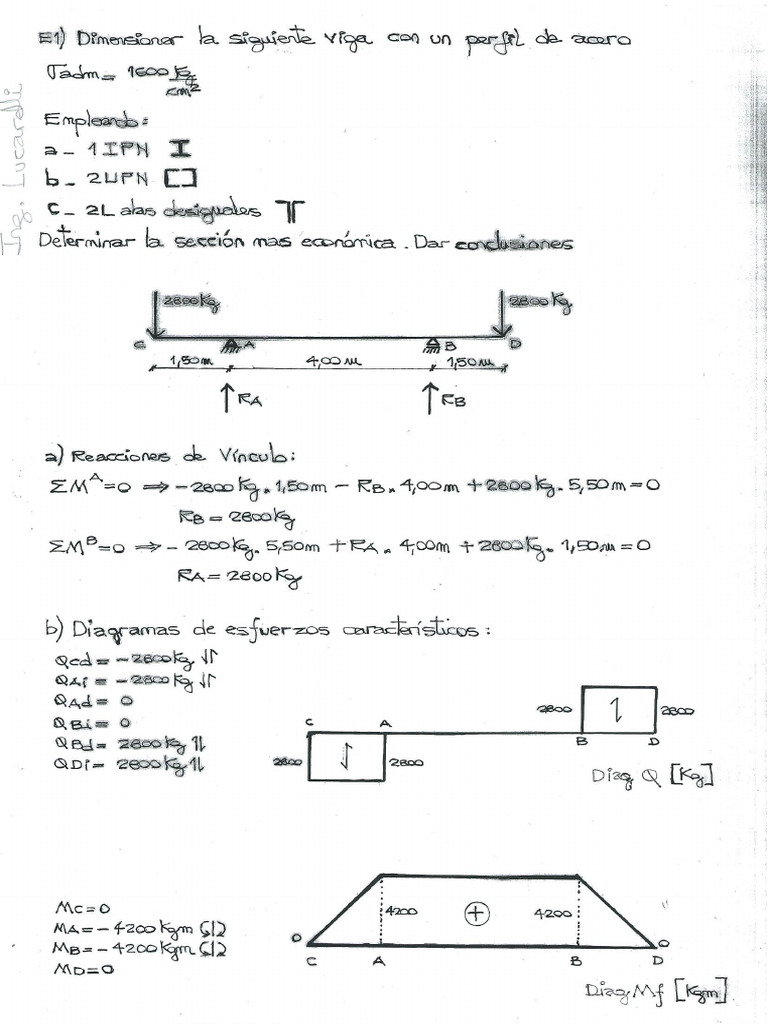 E1) Dimensionar la siguiente viga con un perfil de acero
σadm = 1600 Kg/cm²
Empleando:
a - 1 IPN I
b - 2UPN []
c - 2L alas desiguales
Determinar la sección mas económica. Dar conclusiones
Ing. Lucarelli
2800Kg 2800Kg
C A B D
1,50m 4,00m 1,50m
RA RB
a) Reacciones de Vínculo:
ΣMᴬ=0 ⟹ -2800Kg. 1,50m - RB. 4,00m + 2800Kg. 5,50m = 0
RB = 2800Kg
ΣMᴮ=0 ⟹ - 2800Kg. 5,50m + RA. 4,00m + 2800Kg. 1,50m = 0
RA = 2800Kg
b) Diagramas de esfuerzos característicos:
Qcd = -2800Kg ↓↑
QAi = -2800Kg ↓↑
QAd = 0
QBi = 0
QBd = 2800Kg ↑↓
QDi = 2800Kg ↑↓
C A B D
2800 2800 2800 2800
Diag Q [Kg]
Mc=0
MA=-4200Kgm
MB=-4200Kgm
MD=0
0 4200 + 4200 0
C A B D
Diag Mf [Kgm]